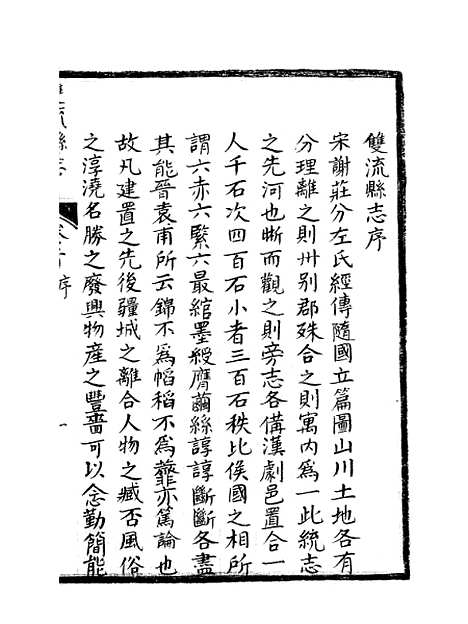 雙流縣志序
宋謝莊分左氏經傳隨國立篇圖山川土地各有
分理離之則州别郡殊合之則寓内爲一此統志
之先河也晰而觀之則旁志各備漢劇邑置合一
人千石次四百石小者三百石秩比侯國之相所
謂六赤六緊六最綰墨綬膺繭絲諄諄斷斷各盡
其能晉袁甫所云錦不爲幍稻不爲虀亦篤論也
故凡建置之先後疆域之離合人物之臧否風俗
之淳澆名勝之廢興物産之豐嗇可以念勤簡能
縣志
序
一